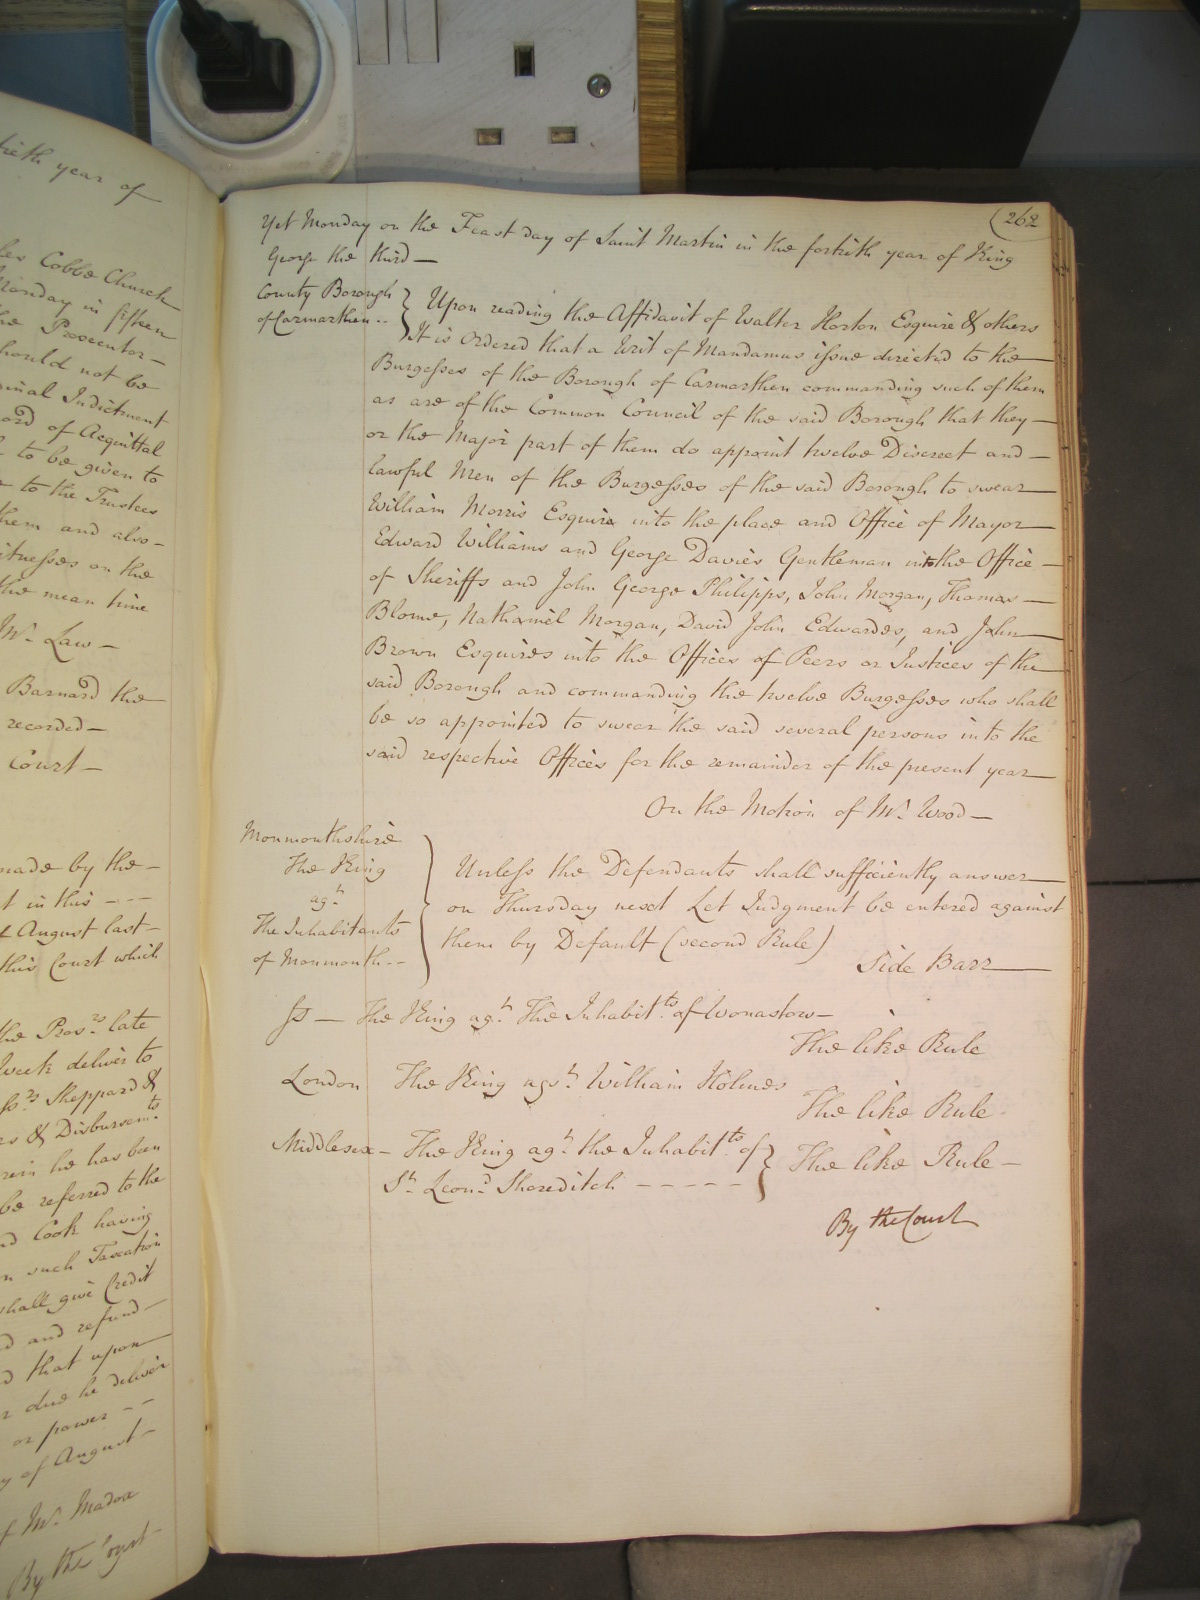 tieth year of
les Cobbe Church
Monday in fifteen
he Prosecutor —
hould not be
ginal Indictment
ord of Acquittal
to be given to
r to the Trustees
them and also —
itnesses on the
the mean time
Mr. Law —
Barnard the
recorded —
Court —
made by the —
t in this - - -
t August last —
this Court which
the Pros.rs late
Week deliver to
ss.rs Sheppard &
rs & Disbursem.ts
rein he has been
be referred to the
nd Cook having
n such Taxation
shall give Credit
d and refund —
d that upon
r due he deliver
or power - -
y of August —
f Mr. Madox
By the Court
262
Yet Monday on the Feast day of Saint Martin in the fortieth year of King
George the third —
County Borough
of Carmarthen - -
Upon reading the Affidavit of Walter Horton Esquire & others
It is Ordered that a Writ of Mandamus issue directed to the —
Burgesses of the Borough of Carmarthen commanding such of them
as are of the Common Council of the said Borough that they —
or the Major part of them do appoint twelve Discreet and —
lawful Men of the Burgesses of the said Borough to swear —
William Morris Esquire into the place and Office of Mayor —
Edward Williams and George Davies Gentleman into the Office —
of Sheriffs and John George Philipps, John Morgan, Thomas —
Blome, Nathaniel Morgan, David John Edwardes, and John —
Brown Esquires into the Offices of Peers or Justices of the
said Borough and commanding the twelve Burgesses who shall
be so appointed to swear the said several persons into the
said respective Offices for the remainder of the present year —
On the Motion of Mr. Wood —
Monmouthshire
The King
ag.t
The Inhabitants
of Monmouth - -
Unless the Defendants shall sufficiently answer —
on Thursday next Let Judgment be entered against
them by Default (second Rule)
Side Barr —
Ss — The King ag.t The Inhabit.ts of Wonastow —
The like Rule
London The King ags.t William Holmes
The like Rule
Middlesex — The King ag.t the Inhabit.ts of
St. Leon.d Shoreditch - - - - -
The like Rule —
By the Court